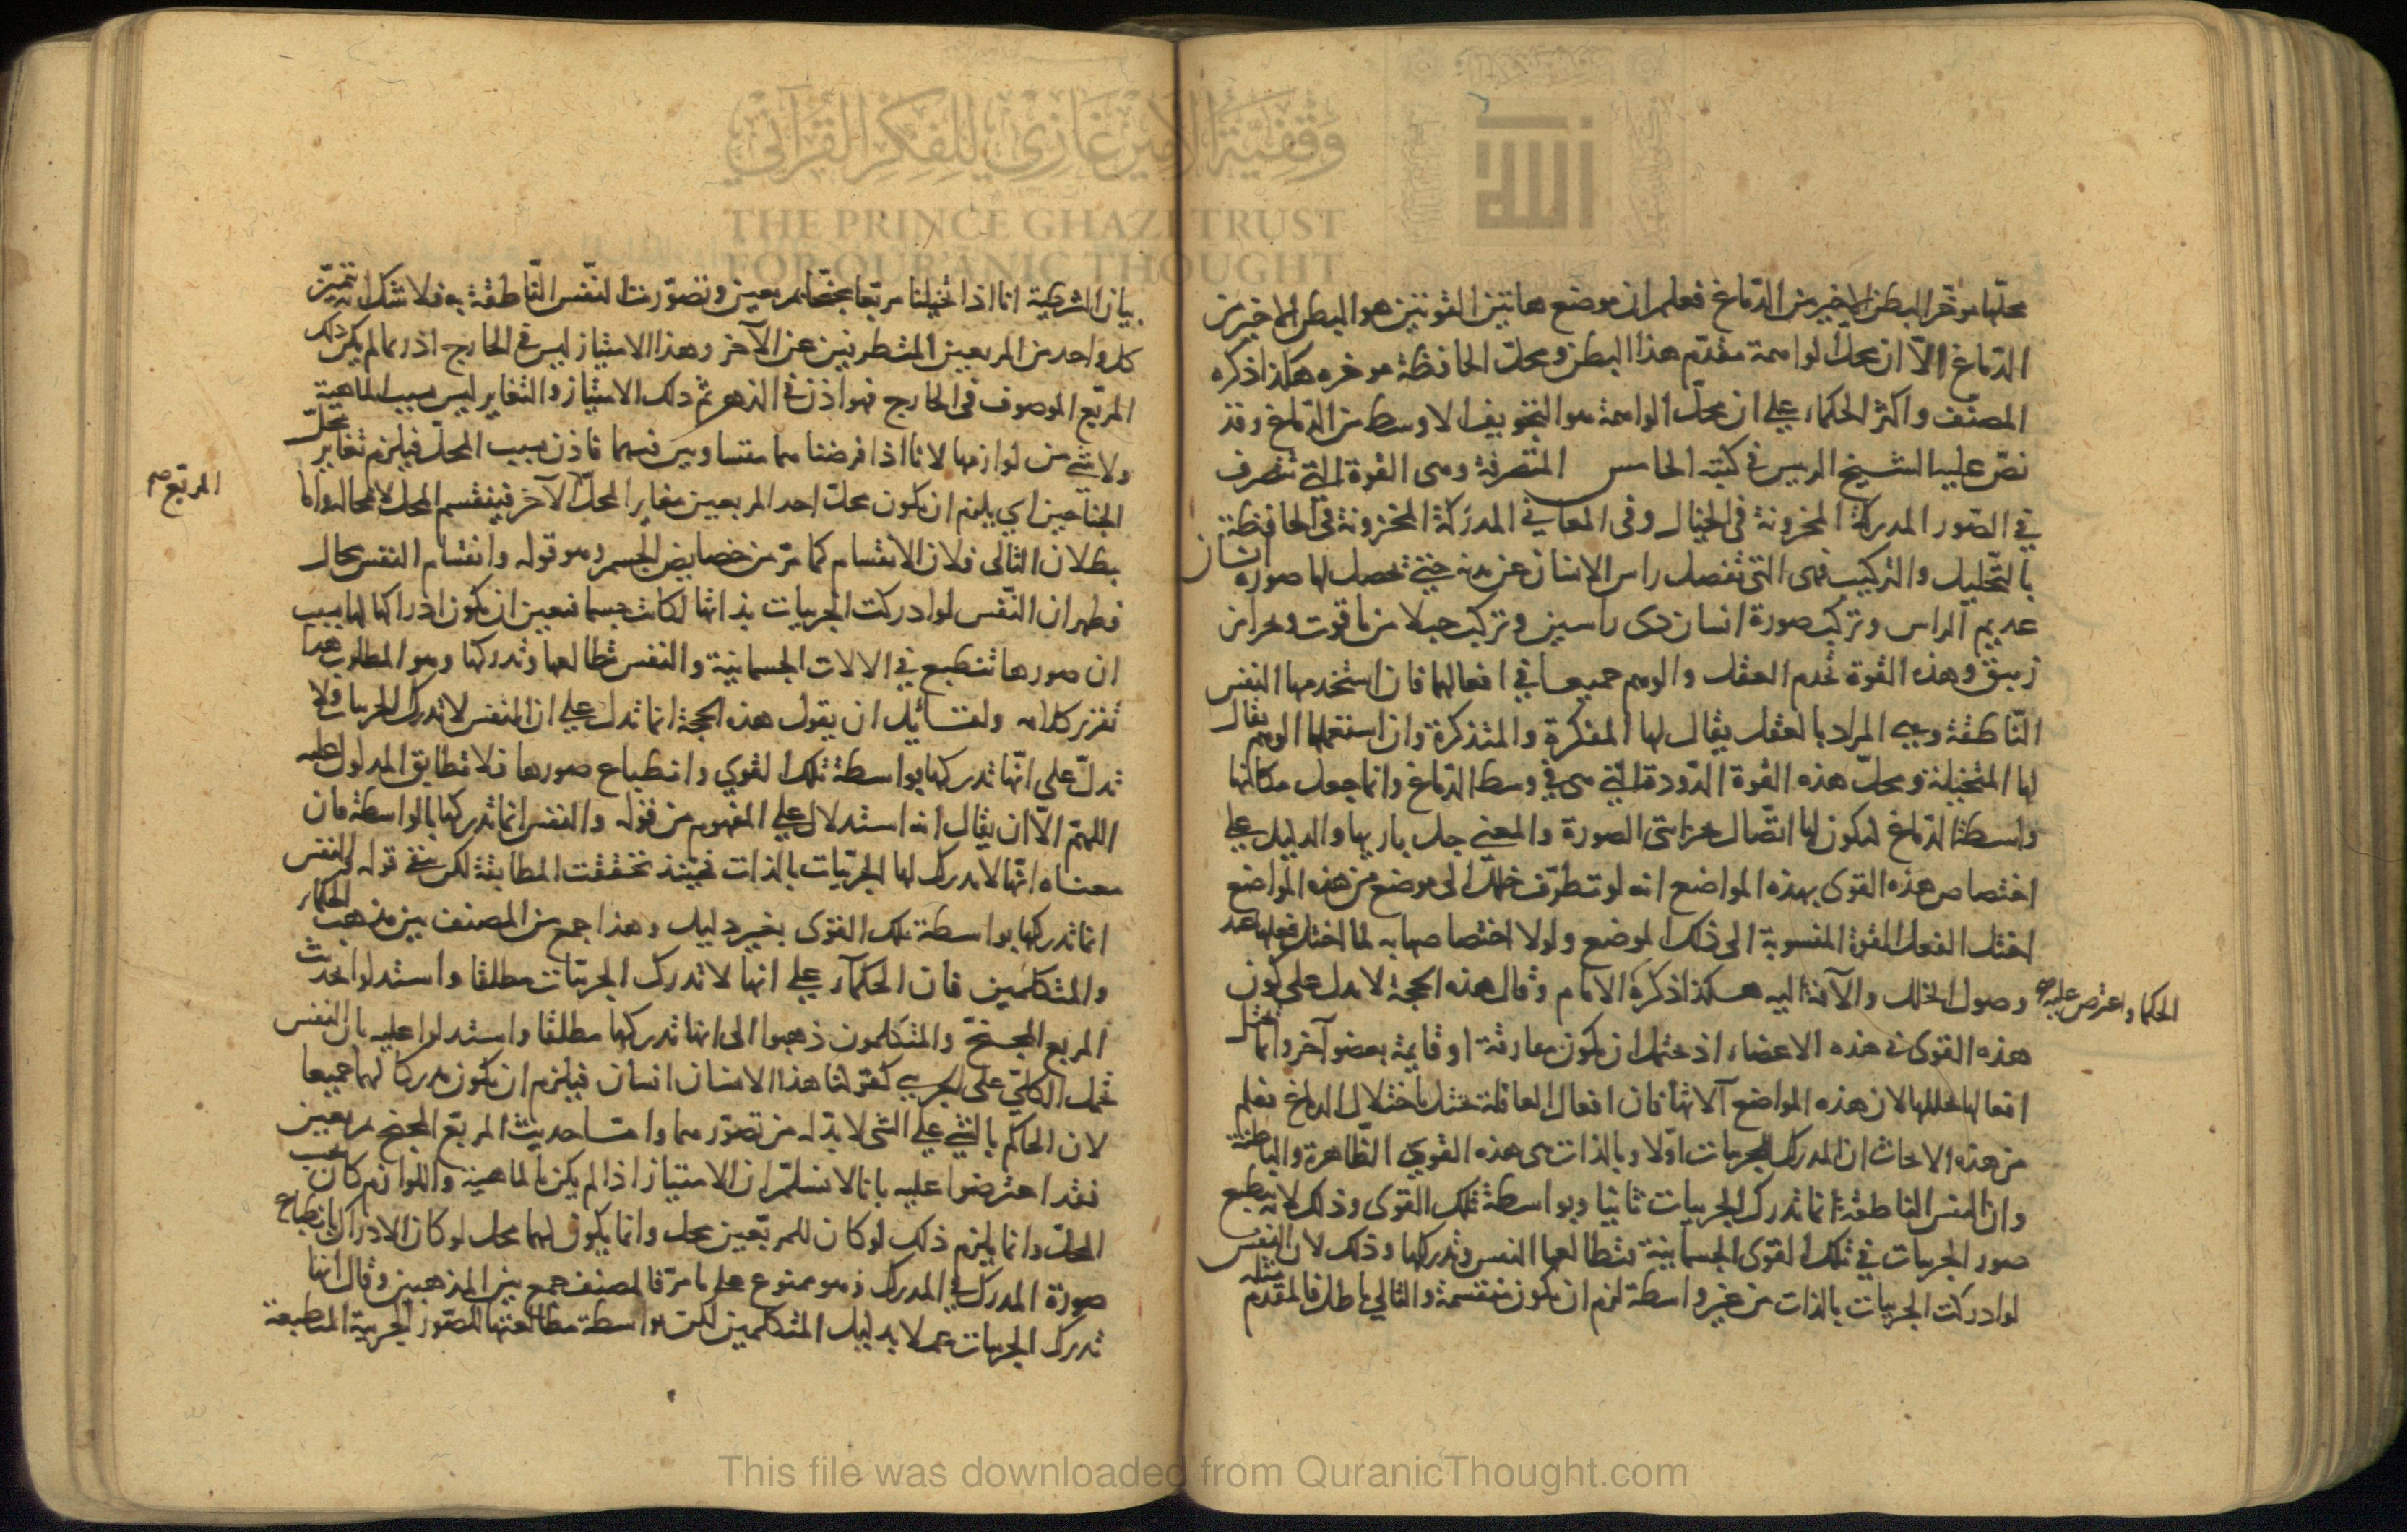 وقفية الأمير غازي للفكر القرآني
THE PRINCE GHAZI TRUST
FOR QUR'ANIC THOUGHT
محلها مؤخر البطن الاخير من الدماغ فعلم ان موضع هاتين القوتين هو البطن الاخير من
الدماغ الا ان محل الواهمة مقدم هذا البطن ومحل الحافظة موخره هكذا ذكره
المصنف واكثر الحكماء على ان محل الواهمة هو التجويف الاوسط من الدماغ وقد
نص عليه الشيخ الرييس في كتبه الخامس المتصرفة وهى القوة التي تتصرف
في الصور المدركة المخزونة في الخيال وفى المعاني المدركة المخزونة في الحافظة
بالتحليل والتركيب فهى التى تفصل راس الانسان عن بدنه حتي تحصل لها صورة انسان
عديم الراس وتركب صورة انسان ذى راسين وتركب جبلا من ياقوت وبحرا من
زيبق وهذه القوة تخدم العقل والوهم جميعا في افعالهما فان استخدمها النفس
الناطقة وهي المراد بالعقل يقال لها المفكرة والمتذكرة وان استعملها الوهم يقال
لها المتخيلة ومحل هذه القوة الدودة التي هى في وسط الدماغ وانما جعل مكانها
واسطة الدماغ ليكون لها اتصال بخزانتى الصورة والمعنى جل باريها والدليل على
اختصاص هذه القوى بهذه المواضع انه لو تطرف خلل الى موضع من هذه المواضع
اختل الفعل القوة المنسوبة الى ذلك الموضع ولولا اختصاصها به لما اختل فعلها عند
وصول الخلل والآفة اليه هكذا ذكره الامام وقال هذه الحجة لا تدل على كون
الحكما واعترض عليه
هذه القوى في هذه الاعضاء اذ يحتمل ان يكون مفارقة او قايمة بعضو آخر وانما يختل
افعالها بخللها لان هذه المواضع آلاتها فان افعال العاقلة تختل باختلال الدماغ فعلم
من هذه الابحاث ان المدرك للجزييات اولا وبالذات هى هذه القوى الظاهرة والباطنة
وان النفس الناطقة انما تدرك الجزييات ثانيا وبواسطة تلك القوى وذلك لانه تنطبع
صور الجزييات في تلك القوى الجسمانية فتطالعها النفس وتدركها وذلك لان النفس
لو ادركت الجزييات بالذات من غير واسطة لزم ان يكون منقسمة والتالي باطل فالمقدم مثله
بيان الشرطية انا اذا تخيلنا مربعا مجنحا بمربعين وتصورت النفس الناطقة به فلا شك انه تتميز
كل واحد من المربعين المتطرفين عن الآخر وهذا الامتياز ليس في الخارج اذ ربما لم يكن ذلك
المربع الموصوف في الخارج فهو اذن في الذهن ثم ذلك الامتياز والتغاير ليس بسبب الماهية
ولا شي من لوازمها لانا اذا فرضنا هما متساويين فيهما فاذن بسبب المحل فيلزم تغاير محل
المربع
الجناحين اي يلزم ان يكون محل احد المربعين مغاير المحل الآخر فينقسم المحل لا محالة واما
بطلان التالى فلان الانقسام كما مر من خصايص الجسم وهو قوله وانقسام النفس محال
فظهر ان النفس لو ادركت الجزييات بذاتها لكانت جسما فتعين ان يكون ادراكها لها بسبب
ان صورها تنطبع في الالات الجسمانية والنفس تطالعها وتدركها وهو المطلوب هذا
تقرير كلامه ولقايل ان يقول هذه الحجة انما تدل على ان النفس لا تدرك الجزييات ولا
تدل على انها تدركها بواسطة تلك القوى وانطباع صورها فلا تطابق المدلول عليه
اللهم الا ان يقال انه استدلال على المفهوم من قوله والنفس انما تدركها بالواسطة فان
معناه انها لا تدرك لها الجزييات بالذات فحينئذ تحققت المطابقة لكن بقى قوله والنفس
انما تدركها بواسطة تلك القوى بغير دليل وهذا جمع من المصنف بين مذهب الحكماء
والمتكلمين فان الحكماء على انها لا تدرك الجزييات مطلقا واستدلوا بحديث
المربع المجنح والمتكلمون ذهبوا الى انها تدركها مطلقا واستدلوا عليه بان النفس
تحمل الكلى على الجزيي كقولنا هذا الانسان انسان فيلزم ان يكون مدركا لهما جميعا
لان الحاكم بالشي على الشي لا بد له من تصورهما واما حديث المربع المجنح بمربعين
فقد اعترضوا عليه بانا لا نسلم ان الامتياز اذا لم يكن بالماهية واللوازم كان بحسب
المحل وانما يلزم ذلك لو كان للمربعين محل وانما يكون لهما محل لو كان الادراك بانطباع
صورة المدرك في المدرك وهو ممنوع على ما مر فالمصنف جمع بين المذهبين وقال انها
تدرك الجزييات عملا بدليل المتكلمين لكن بواسطة مطالعتها للصور الجزيية المنطبعة
This file was downloaded from QuranicThought.com